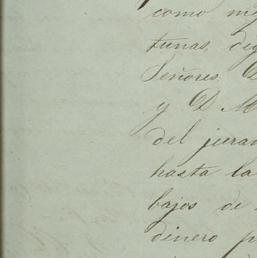 como
tunas, de
Señores, D
y D. M
del juram
hasta la
bajos de
dinero p